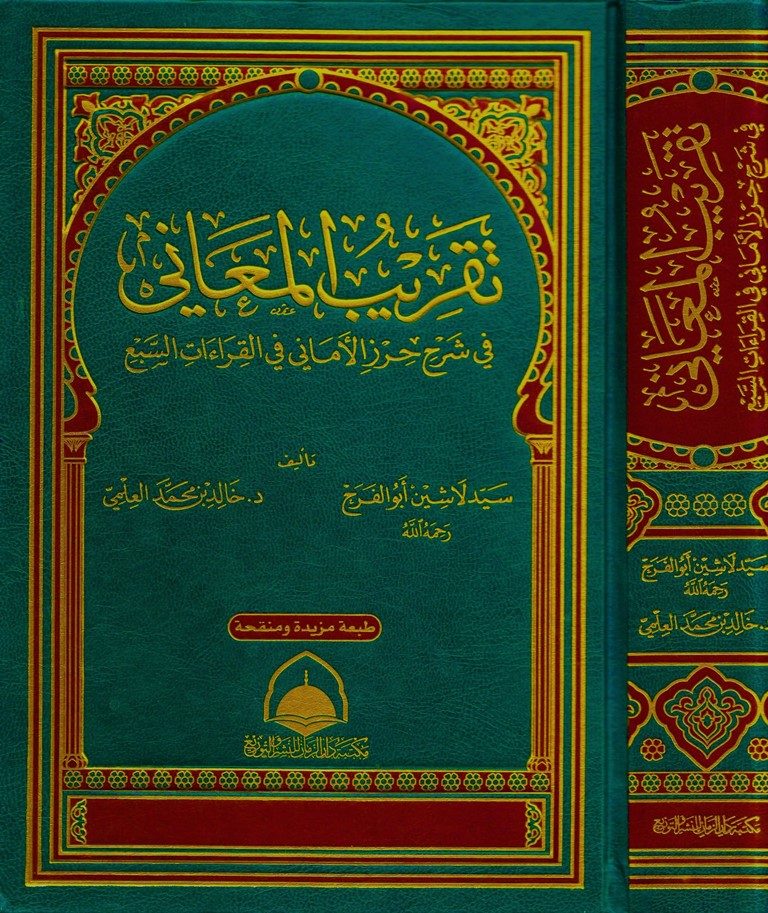 تقريب المعاني
في شرح حرز الأماني في القراءات السبع
تأليف
سيد لاشين أبو الفرج د. خالد بن محمد العلمي
رحمه الله
طبعة مزيدة ومنقحة
مكتبة دار الزمان للنشر والتوزيع
تقريب المعاني
في شرح حرز الأماني في القراءات السبع
سيد لاشين أبو الفرج
رحمه الله
د. خالد بن محمد العلمي
مكتبة دار الزمان للنشر والتوزيع